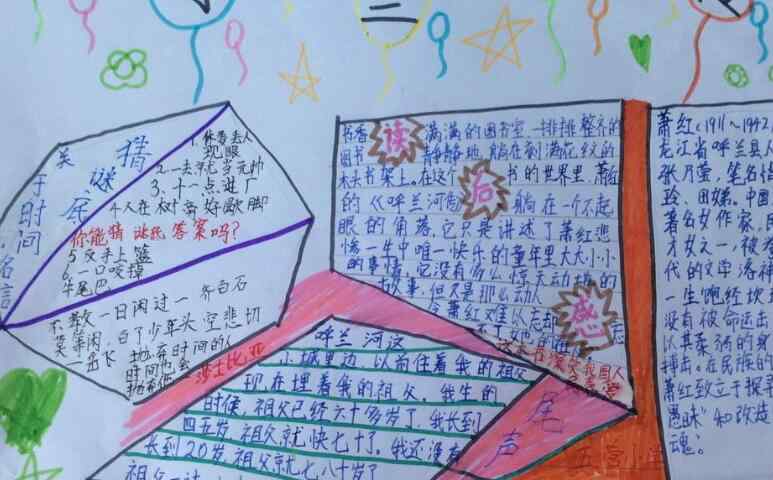 二
猜
谜底
1.
2.一去
3.十一点进厂
4.人在树旁好歇脚
你能猜出谜底答案吗?
5.反手上篮
6.一口咬掉
牛尾巴
于时间
名言
不教一日闲过 一 齐白石
笑等闲,白了少年头,空悲切
一岳飞 抛弃时间的人
时间也会
抛弃他
莎士比亚
读
后
感
书香 满满的图书室,一排排整齐的
图书 静静地 躺在刻满花纹的
木头书架上。在这个 书的世界里,萧红
的《呼兰河传 躺在一个不起
眼的角落,它只是讲述了萧红悲
惨一生中唯一快乐的童年里大大小小
的事情,它没有多么惊天动地的
故事,但只是那么动人
萧红难以忘却
呼兰河这
小城里边,以前住着我的祖父
现在埋着我的祖父。我生的
时候,祖父已经六十多岁了,我长到
四五岁,祖父就快七十了。我还没有
长到20岁,祖父就七八十岁了
尾
声
萧红(1911~1942
龙江省呼兰县人
张乃莹,笔名悄
玲、田娣。中国
著名女作家,民
才女之一,被
代的文学洛神
一生饱经坎
没有被命运击
以其柔弱的身
搏击。在民族的
萧红致立于探
愚昧"和改造
魂。
五营小学